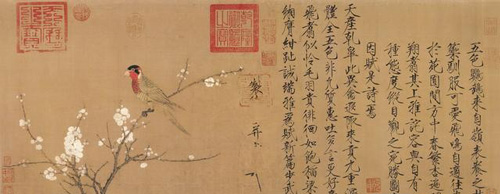 五色鸚鵡來自嶺表養之
籞馴服可愛飛鳴自適往
於苑囿間方中春繁杏遍
翔翥其上雅詫容與自有
種態度縱目觀之宛勝
因賦是詩焉
天產乾皋此異禽遐陬來貢九重
體全五色非凡質惠吐多言更好
飛翥似憐毛羽貴徘徊如飽稻粱
緗膺紺趾誠端雅爲賦新篇步武
製
并